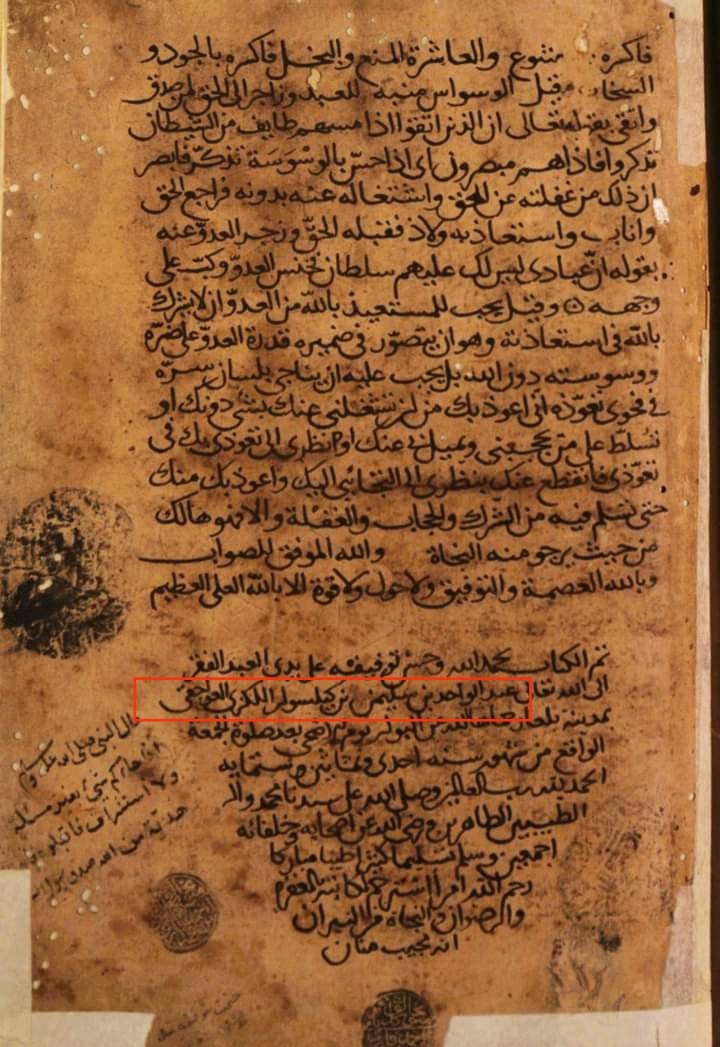 فاكسره متنوع والعاشرة المنع والبخل فاكسره بالجود و
السخاء وقيل الوسواس منبه للعبد وزاجر الى الحق لمن صدق
واتقى بقوله تعالى ان الذين اتقوا اذا مسهم طايف من الشيطان
تذكروا فاذا هم مبصرون اى اذا احس بالوسوسة تذكر فابصر
ان ذلك من غفلته عن الحق واشتغاله عنه بدونه فراجع الحق
واناب واستعاذ به ولاذ فقبله الحق وزجر العدو عنه
بقوله ان عبادى ليس لك عليهم سلطان فخنس العدو وكب على
وجهه وقيل يجب للمستعيذ بالله من العدو ان لا يشرك
بالله فى استعاذته وهو ان يتصور فى ضميره قدرة العدو على ضره
ووسوسته دون الله بل يجب عليه ان يناجى بلسان سره
فى فحوى تعوذه انى اعوذ بك من ان تشغلنى عنك بشى دونك او
تسلط على من يحجبنى ويميل بى عنك او انظر الى تعوذى بك فى
تعوذى فانقطع عنك بنظرى الى التجائى اليك واعوذ بك منك
حتى تسلم فيه من الشرك والحجاب والغفلة والا فهو هالك
من حيث يرجو منه النجاة والله الموفق للصواب
وبالله العصمة والتوفيق ولا حول ولا قوة الا بالله العلى العظيم
تم الكتاب بحمد الله وحسن توفيقه على يدى العبد الفقير
الى الله تعالى عبد الواحد بن سليمن بن اللكزى
بمدينة حماها الله من يوم بعد صلوة الجمعة
الواقع من شهور سنه احدى وثمانين وستمايه
الحمد لله رب العالمين وصلى الله على سيدنا محمد واله
الطيبين الطاهرين ورضى الله عن اصحابه وخلفائه
اجمعين وسلم تسليما كثيرا طيبا مباركا
رحم الله امرأ استرحم لكاتبه الفقير
والرضوان والنجاة من النيران
انه مجيب منان
قال النبى صلى الله عليه
من الله